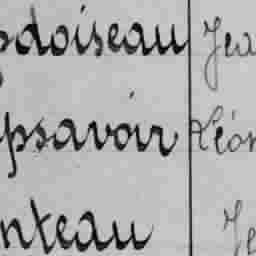 doiseau Jea
psavoir Léon
nteau Je